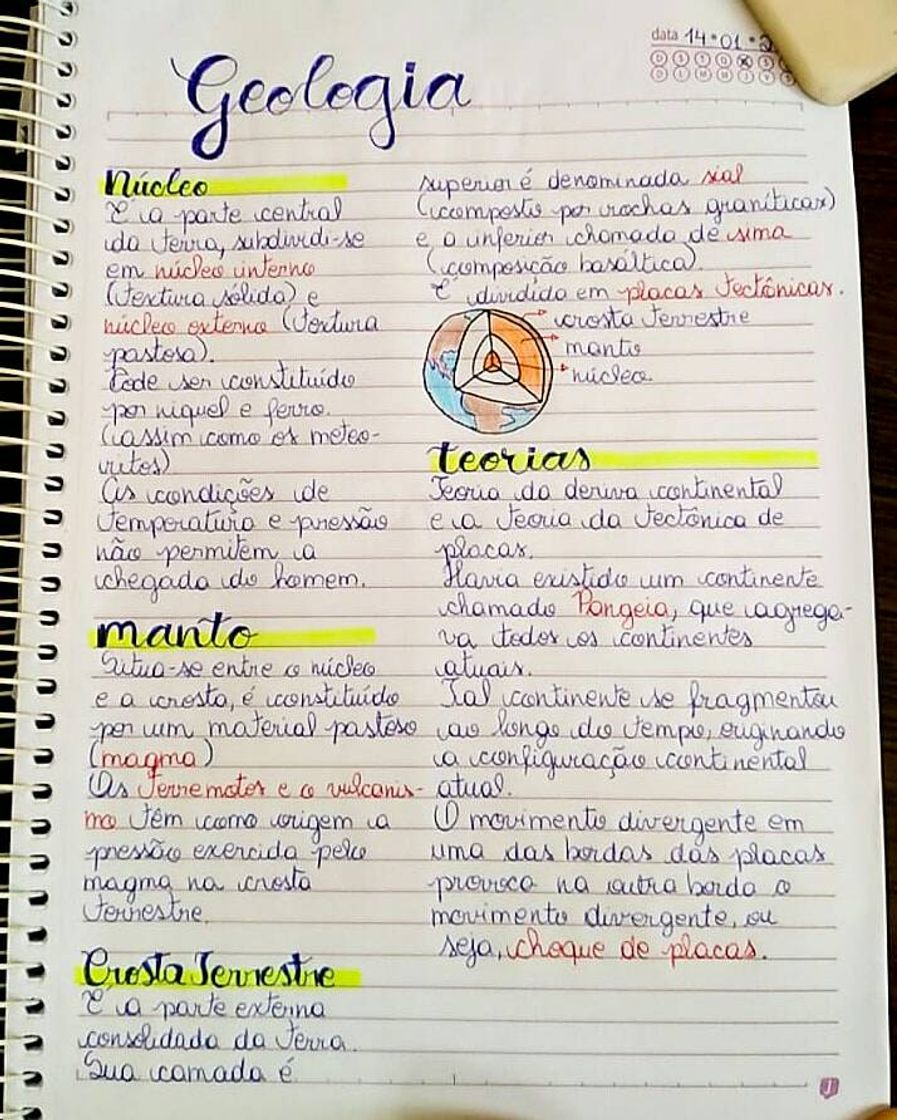 data 14 • 01 •
Geologia
Núcleo
É a parte central
da terra, subdividi-se
em núcleo interno
(textura sólida) e
núcleo externo (textura
pastosa).
Pode ser constituído
por niquel e ferro.
(assim como os meteo-
ritos)
As condições de
temperatura e pressão
não permitem a
chegada do homem.
manto
Situa-se entre o núcleo
e a crosta, é constituído
por um material pastoso
(magma)
Os terremotos e o vulcanis-
mo têm como origem a
pressão exercida pelo
magma na crosta
terrestre.
Crosta Terrestre
É a parte externa
consolidada da terra.
Sua camada é
superior é denominada sial
(composto por rochas graníticas)
e a inferior chamada de sima
(composição basáltica).
É dividida em placas tectônicas.
crosta terrestre
manto
núcleo.
teorias
Teoria da deriva continental
e a teoria da tectônica de
placas.
Havia existido um continente
chamado Pangeia, que agrega-
va todos os continentes
atuais.
Tal continente se fragmentou
ao longo do tempo, originando
a configuração continental
atual.
O movimento divergente em
uma das bordas das placas
provoca na outra borda o
movimento divergente, ou
seja, choque de placas.